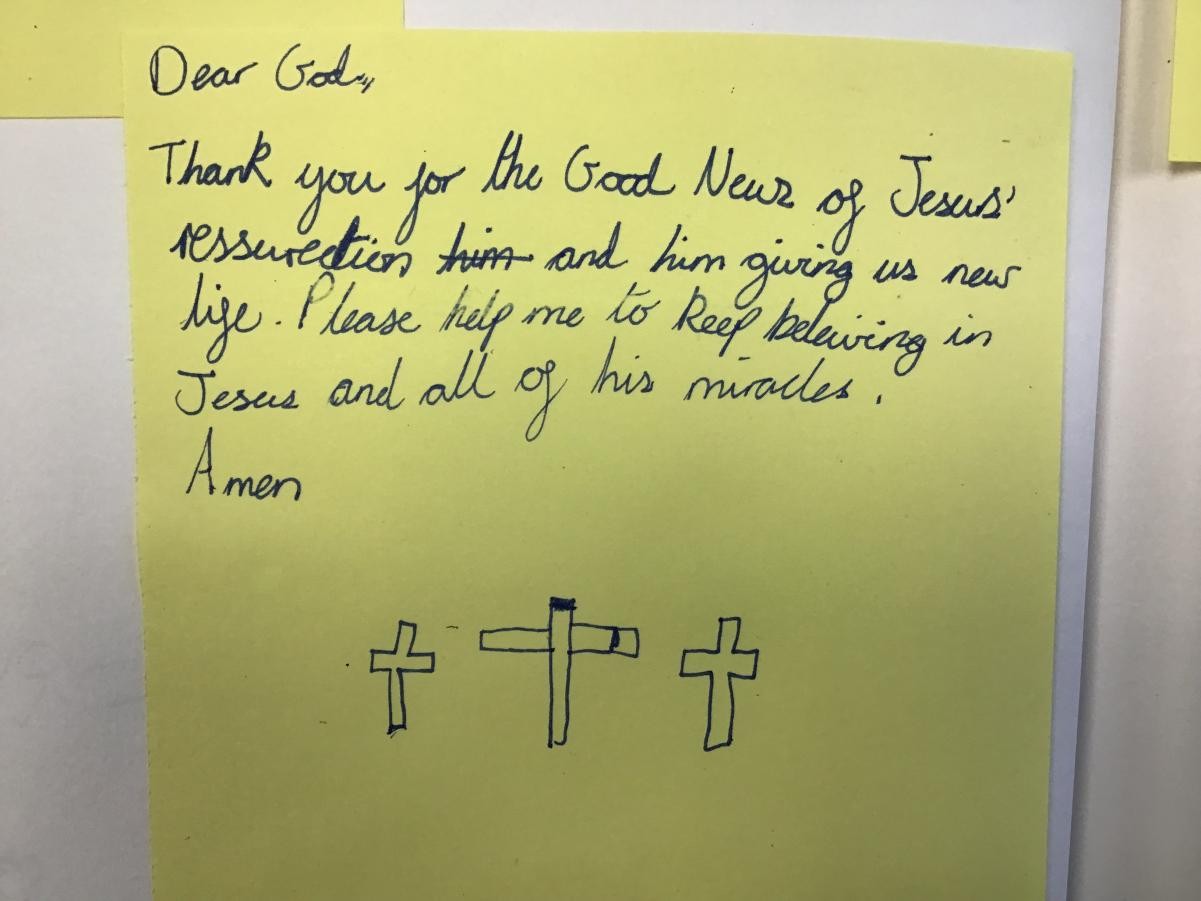 Dear God,,
Thank you for the Good News of Jesus'
ressurection him and him giving us new
life. Please help me to keep beleiving in
Jesus and all of his miracles.
Amen